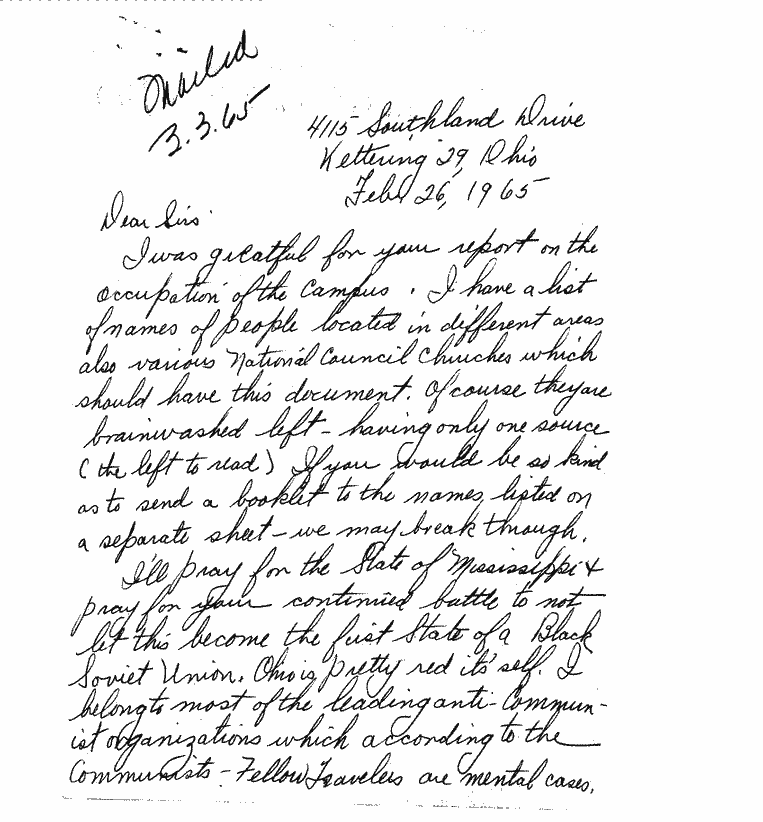 Mailed
3.3.65
4115 Southland Drive
Kettering 29, Ohio
Feb. 26, 1965
Dear Sirs:
I was greatful for your report on the
occupation of the Campus. I have a list
of names of people located in different areas
also various National Council Churches which
should have this document. Of course they are
brainwashed left - having only one source
(the left to read) If you would be so kind
as to send a booklet to the names listed on
a separate sheet - we may break through.
I'll pray for the State of Mississippi &
pray for your continued battle to not
let this become the first State of a Black
Soviet Union. Ohio is pretty red its' self. I
belong to most of the leading anti-Commun-
ist organizations which according to the
Communists - Fellow Travelers are mental cases.